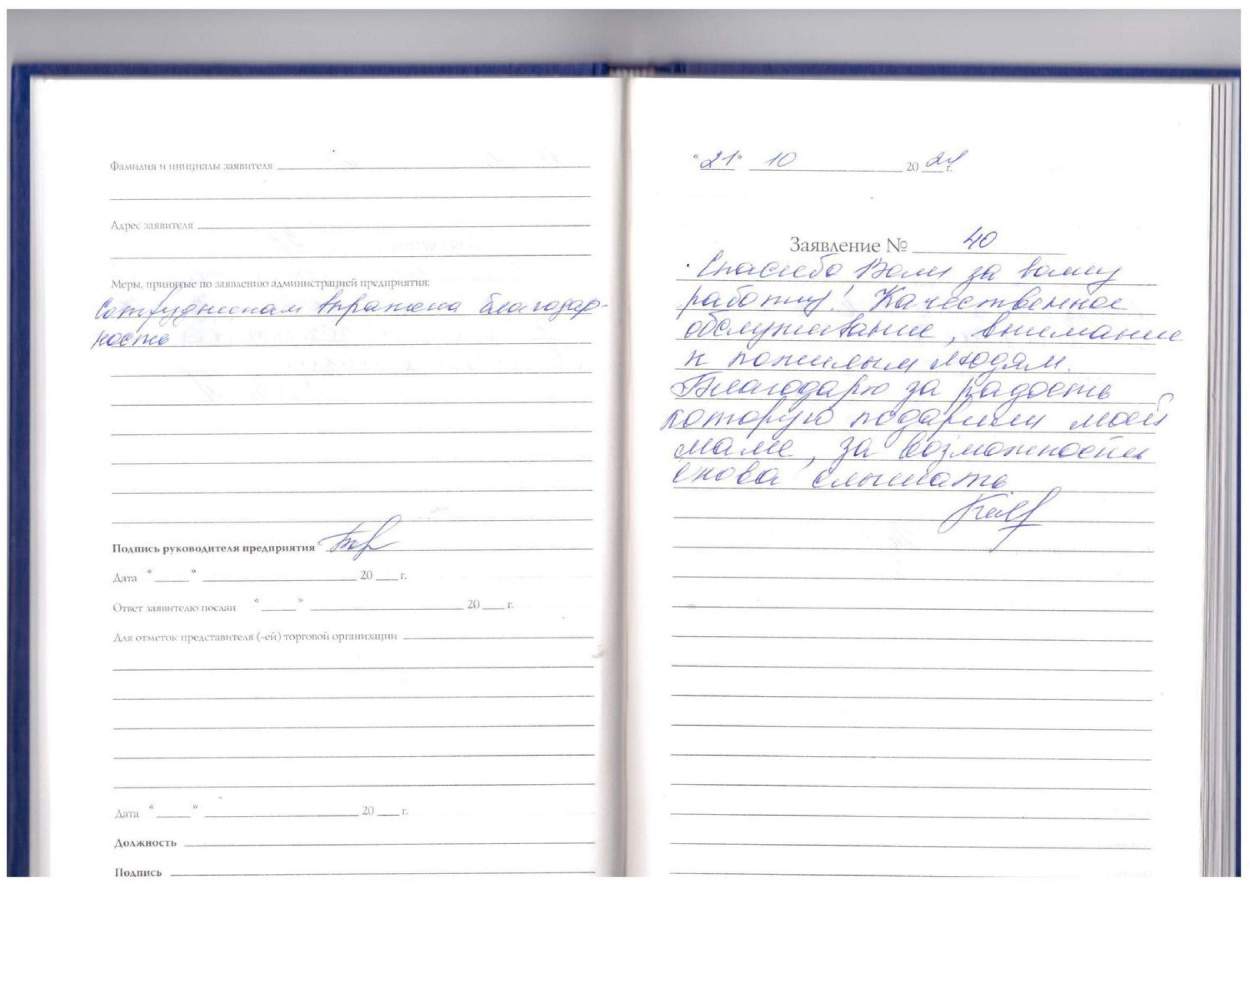 Фамилия и инициалы заявителя
Адрес заявителя
Меры, принятые по заявлению администрацией предприятия:
Сотрудникам выражена благодар-
ность
Подпись руководителя предприятия
Дата "____" ____ 20 ___ г.
Ответ заявителю послан "____" ____ 20 ___ г.
Для отметок представителя (-ей) торговой организации
Дата "____" ____ 20 ___ г.
Должность
Подпись
"21" 10 20 г.
Заявление № 40
Спасибо Вам за вашу
работу! Качественное
обслуживание, внимание
к пожилым людям.
Благодарю за радость
которую подарили моей
маме, за возможность
снова слышать